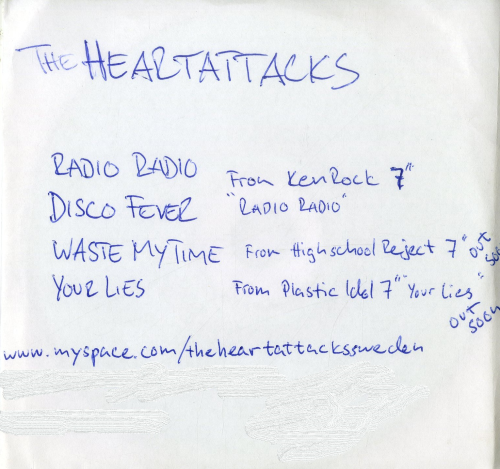 THE HEARTATTACKS
RADIO RADIO From KenRock 7"
DISCO FEVER "RADIO RADIO"
WASTE MY TIME From Highschool Reject 7" out soon
YOUR LIES From Plastic Idol 7" "Your Lies" out soon
www.myspace.com/theheartattackssweden